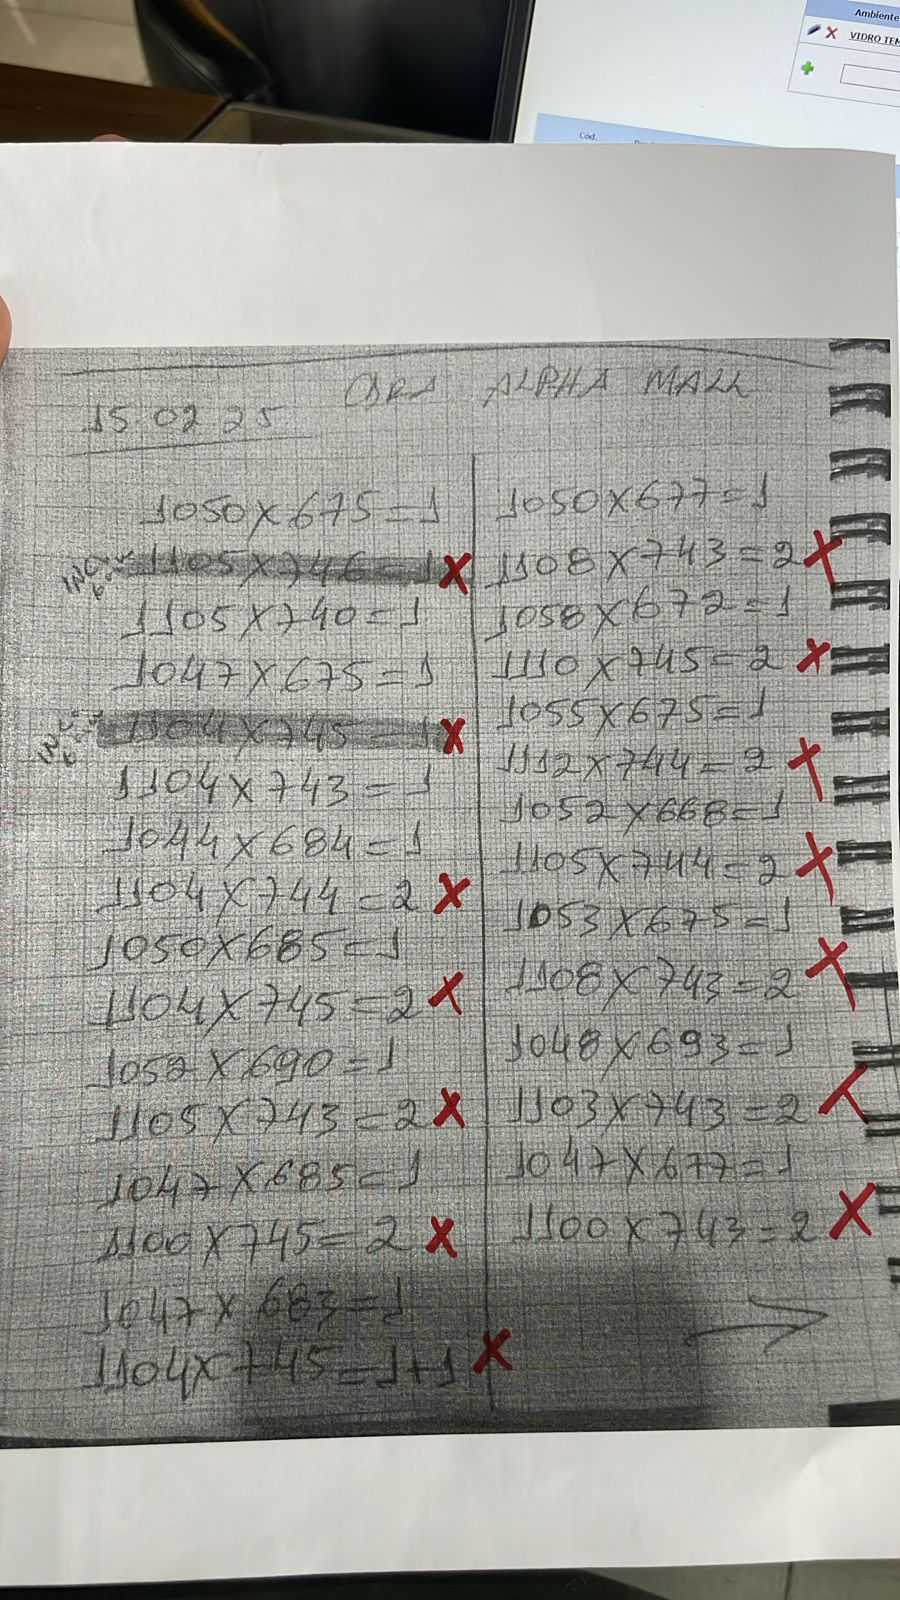 Ambiente
VIDRO TEM
Cód.
OBRA ALPHA MALL
15 02 25
1050X675=1
INC. 1105X746=1 X
1105X740=1
1047X675=1
INC. 1104X745=1 X
1104X743=1
1044X684=1
1104X744=2 X
1050X685=1
1104X745=2 X
1052X690=1
1105X743=2 X
1047X685=1
1100X745=2 X
1047X683=1
1104X745=1+1 X
1050X677=1
1108X743=2 X
1058X672=1
1110X745=2 X
1055X675=1
1112X744=2 X
1052X668=1
1105X744=2 X
1053X675=1
1108X743=2 X
1048X693=1
1103X743=2 X
1047X677=1
1100X743=2 X